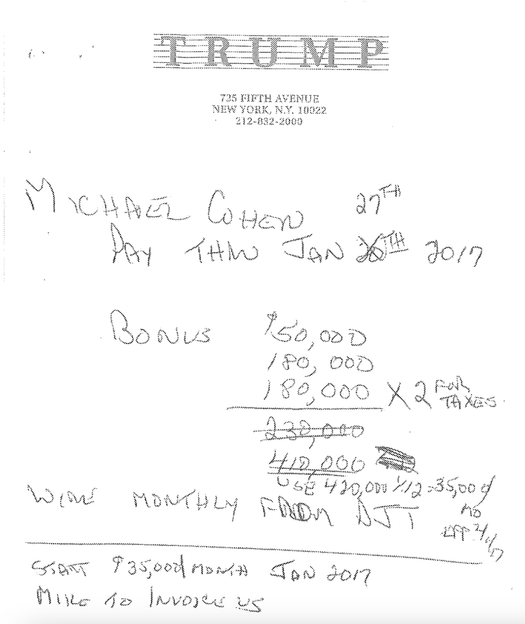 TRUMP
725 FIFTH AVENUE
NEW YORK, N.Y. 10022
212-832-2000
MICHAEL COHEN 27TH
PAY THRU JAN TH 2017
BONUS $50,000
180,000
180,000 X 2 FOR TAXES
230,000
410,000
USE 420,000 1/12 = 35,000/
MO
WIRE MONTHLY FROM DJT
START $35,000/MONTH JAN 2017
MIKE TO INVOICE US